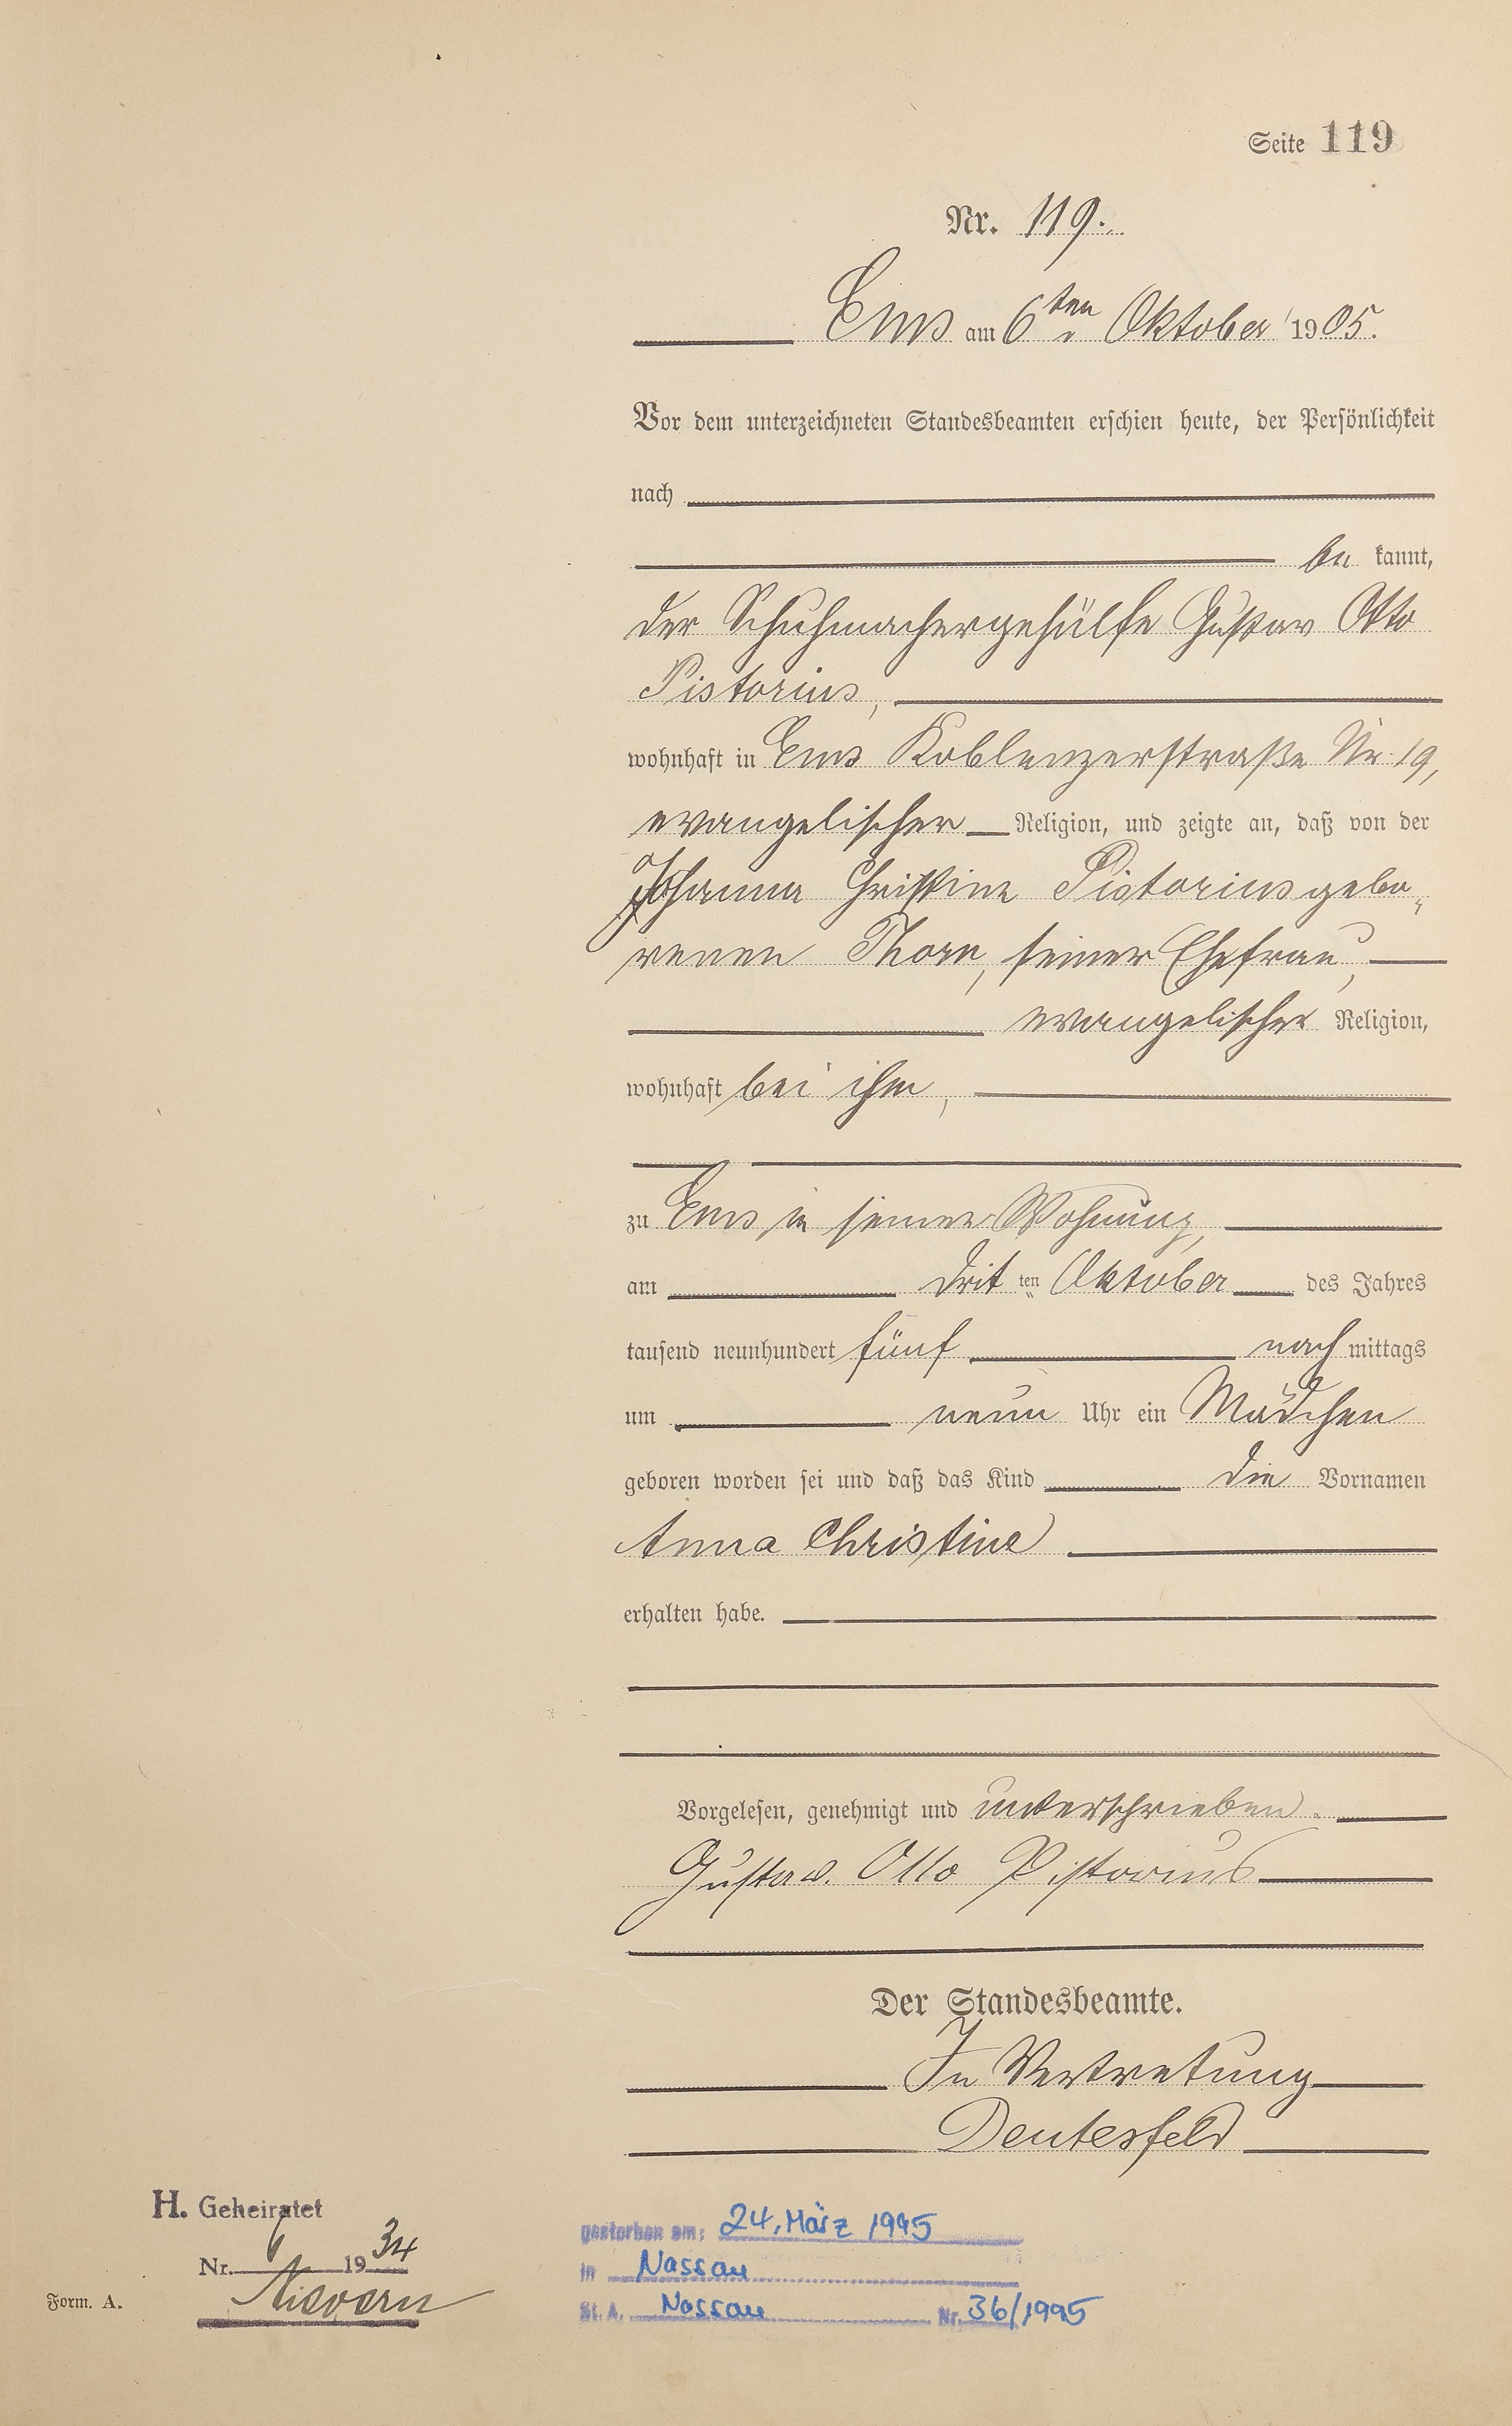 Seite 119
Nr. 119.
Ems am 6ten Oktober 1905.
Vor dem unterzeichneten Standesbeamten erschien heute, der Persönlichkeit
nach
be kannt,
der Schuhmachergehülfe Gustav Otto
Pistorius,
wohnhaft in Ems Koblenzerstraße Nr. 19,
evangelischer Religion, und zeigte an, daß von der
Johanna Christine Pistorius gebo„
renen Thorn, seiner Ehefrau,
evangelischer Religion,
wohnhaft bei ihm,
zu Ems in seiner Wohnung,
am drit ten Oktober des Jahres
tausend neunhundert fünf nach mittags
um neun Uhr ein Mädchen
geboren worden sei und daß das Kind die Vornamen
Anna Christine
erhalten habe.
Vorgelesen, genehmigt und unterschrieben.
Gustav. Otto Pistorius
Der Standesbeamte.
In Vertretung
Deutesfeld
H. Geheiratet
Nr. 6 1934
Nievern
Form. A.
gestorben am: 24. März 1995
in Nassau
St. A. Nassau Nr. 36/1995